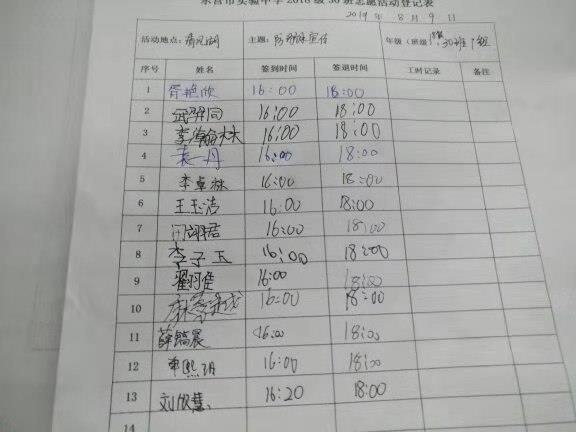 东营市实验中学2018级30班志愿活动登记表
2019年8月9日
活动地点：清风湖 主题：防溺水宣传 年级（班级）18级30班 组
序号 姓名 签到时间 签退时间 工时记录 备注
1 16:00 18:00
2 武羿同 16:00 18:00
3 16:00 18:00
4 袁一丹 16:00 18:00
5 李卓林 16:00 18:00
6 王玉洁 16:00 18:00
7 闫翊君 16:00 18:00
8 李子玉 16:00 18:00
9 翟羽佳 16:00 18:00
10 16:00 18:00
11 薛皓晨 16:00 18:00
12 16:00 18:00
13 刘欣慧 16:20 18:00
14